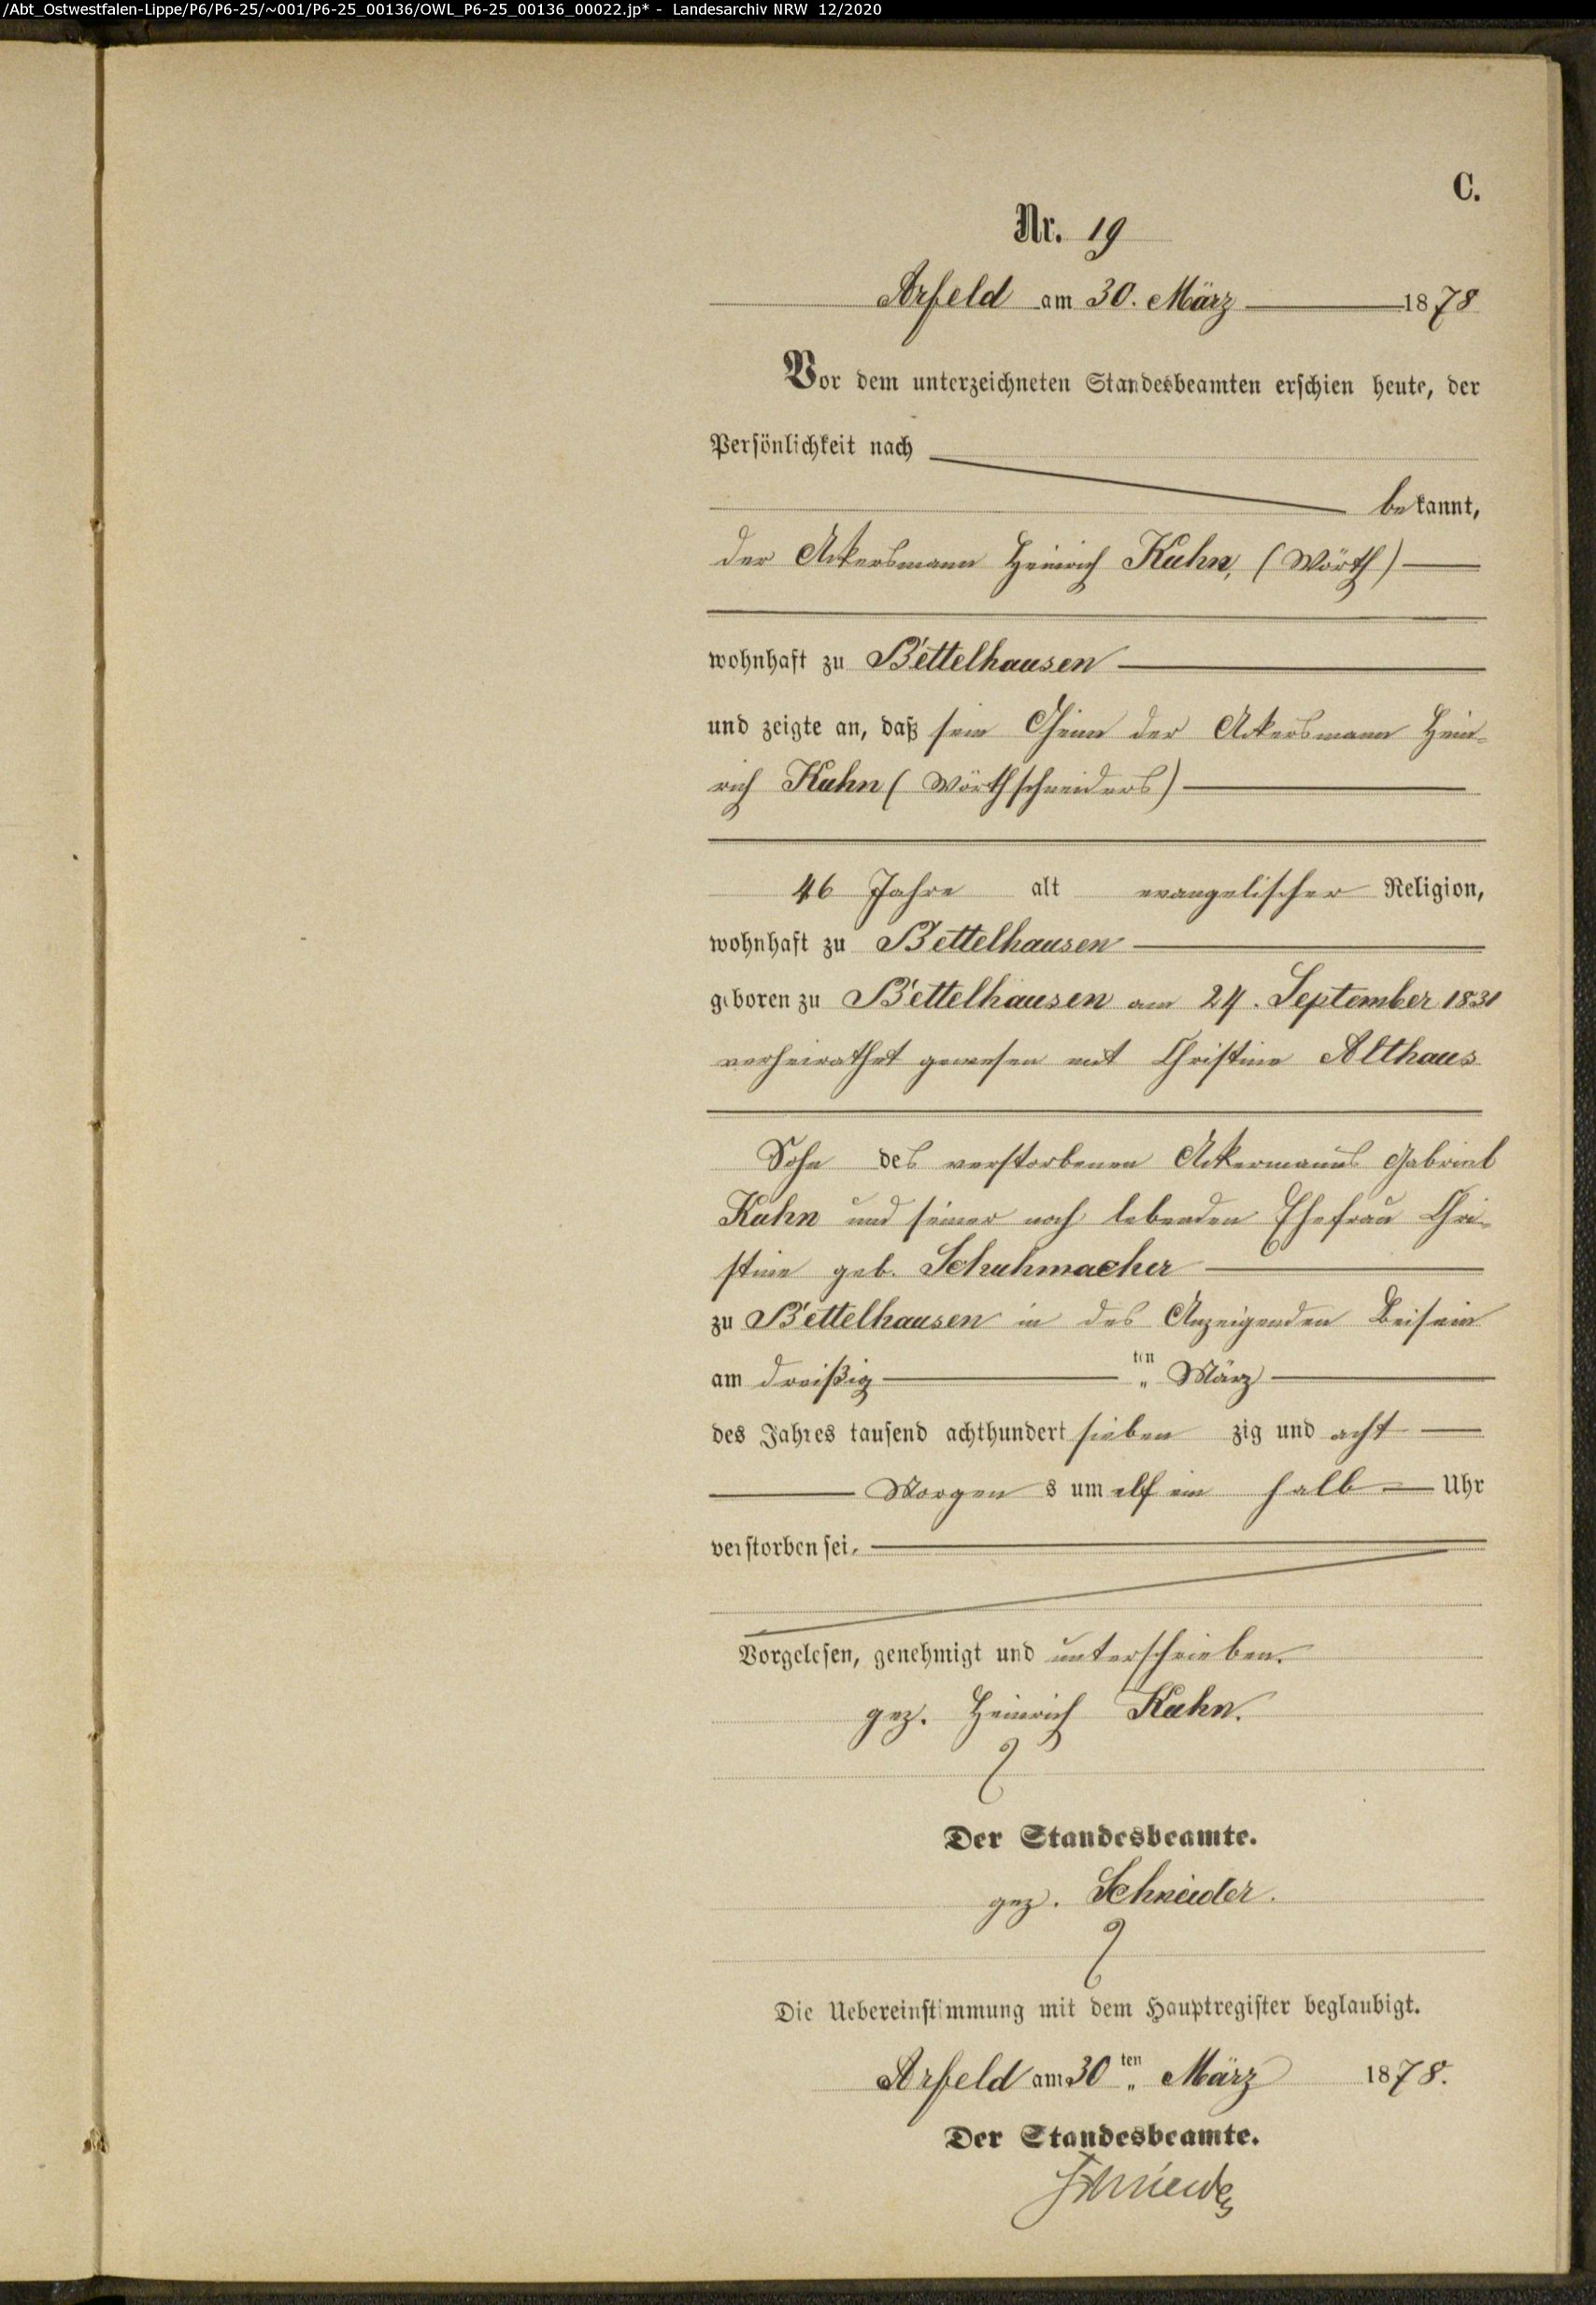 /Abt_Ostwestfalen-Lippe/P6/P6-25/~001/P6-25_00136/OWL_P6-25_00136_00022.jp* - Landesarchiv NRW 12/2020
C.
Nr. 19
Arfeld am 30. März 1878
Vor dem unterzeichneten Standesbeamten erschien heute, der
Persönlichkeit nach
bekannt,
der Ackersmann Heinrich Kuhn, (Wörth)
wohnhaft zu Bettelhausen
und zeigte an, daß sein Oheim der Ackersmann Hein-
rich Kuhn (Wörthschneiders)
46 Jahre alt evangelischer Religion,
wohnhaft zu Bettelhausen
geboren zu Bettelhausen am 24. September 1831
verheirathet gewesen mit Christine Althaus
Sohn des verstorbenen Ackermanns Gabriel
Kuhn und seiner noch lebenden Ehefrau Chri-
stine geb. Schuhmacher
zu Bettelhausen in des Anzeigenden Beisein
am dreißig ten März
des Jahres tausend achthundert sieben zig und acht
Morgen s um elf ein halb Uhr
verstorben sei.
Vorgelesen, genehmigt und unterschrieben.
gez. Heinrich Kuhn.
Der Standesbeamte.
gez. Schneider.
Die Uebereinstimmung mit dem Hauptregister beglaubigt.
Arfeld am 30 ten März 1878.
Der Standesbeamte.
Schneider